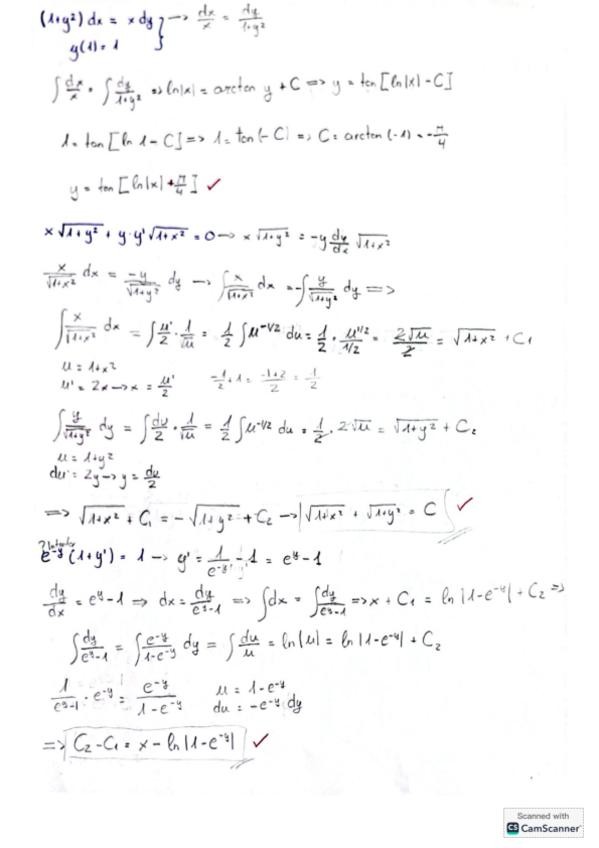 (1+y²) dx = x dy } → dx/x = dy/1+y²
y(1) = 1
∫ dx/x = ∫ dy/1+y² => ln|x| = arcton y + C => y = ton [ln|x| - C]
1 = ton [ln 1 - C] => 1 = ton (- C) => C = arcton (-1) = -π/4
y = ton [ln|x| + π/4] ✓
x √1+y² + y · y' √1+x² = 0 → x √1+y² = -y dy/dx √1+x²
x/√1+x² dx = -y/√1+y² dy → ∫ x/√1+x² dx = -∫ y/√1+y² dy =>
∫ x/√1+x² dx = ∫ u'/2 · 1/√u = 1/2 ∫ u^-1/2 du = 1/2 · u^1/2/1/2 = 2√u/2 = √1+x² + C₁
u = 1+x²
u' = 2x → x = u'/2 -1/2 + 1 = -1+2/2 = 1/2
∫ y/√1+y² dy = ∫ du/2 · 1/√u = 1/2 ∫ u^-1/2 du = 1/2 · 2√u = √1+y² + C₂
u = 1+y²
du = 2y → y = du/2
=> √1+x² + C₁ = - √1+y² + C₂ → √1+x² + √1+y² = C ✓
e^-y (1+y') = 1 → y' = 1/e^-y - 1 = e^y - 1
dy/dx = e^y - 1 => dx = dy/e^y-1 => ∫dx = ∫ dy/e^y-1 => x + C₁ = ln |1-e^-y| + C₂ =>
∫ dy/e^y-1 = ∫ e^-y/1-e^-y dy = ∫ du/u = ln |u| = ln |1-e^-y| + C₂
1/e^y-1 · e^-y = e^-y/1-e^-y u = 1-e^-y
du = -e^-y dy
=> C₂ - C₁ = x - ln |1-e^-y| ✓
Scanned with
CS CamScanner